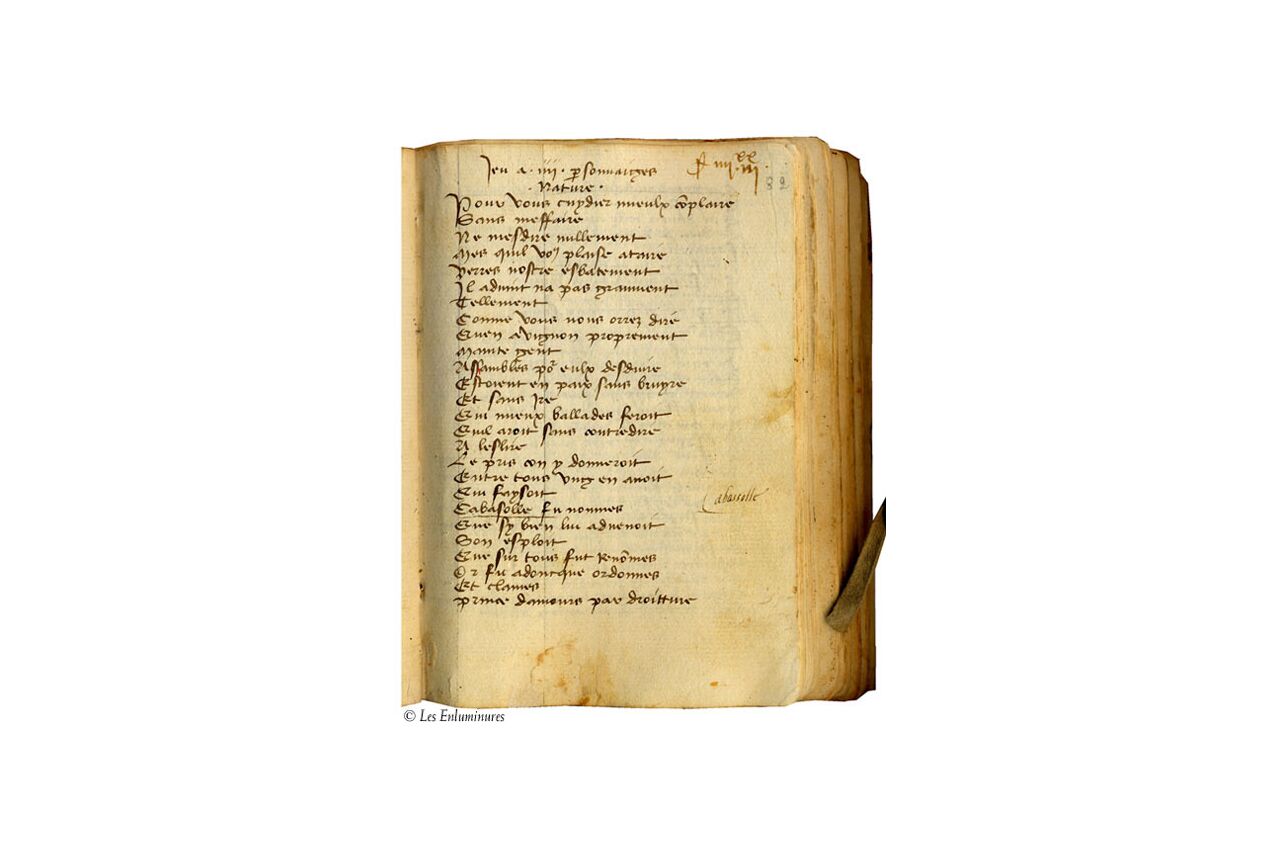 Jeu a .iiii. p̱sonnaiges
f iiii.xx iii.
82
. Nature .
Pour vous cuydier mieulx cōplaire
Sans meffaire
Ne mesdire nullement
Mes quil voꝰ plaise a taire
Verres nostre esbatement
Il advint na pas granment
Tellement
Comme vous nous orrez dire
Quen Avignon proprement
Mainte gent
Assambles por eulx desduire
Estoient en paix sans bruyre
Et sans Ire
Qui mieux ballades feroit
Quil aroit sans contredire
A leslire
Le pris con y donneroit
Entre tous ung en avoit
Qui faysoit
Cabasolle fu nommes
Cabassolle
Que sy bien lui advenoit
Son esploit
Que sur tous fut renōmes
Or fu adoncque ordonnes
Et clames
Prince damours par droitture
© Les Enluminures